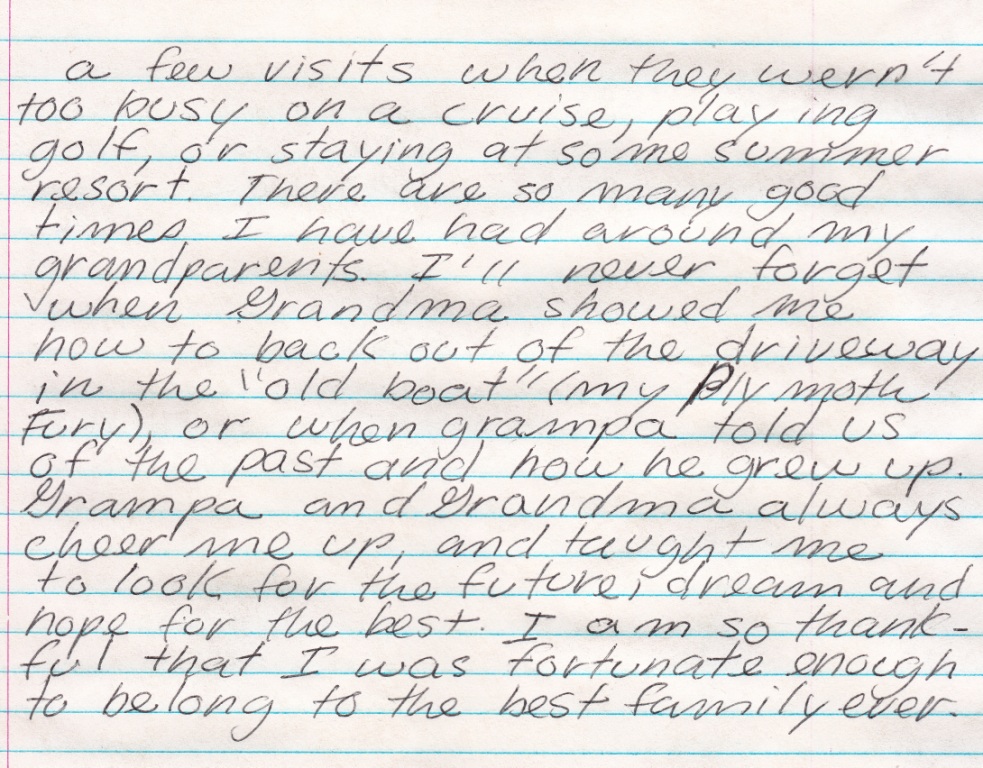 a few visits when they wern't
too busy on a cruise, playing
golf, or staying at some summer
resort. There are so many good
times I have had around my
grandparents. I'll never forget
when Grandma showed me
how to back out of the driveway
in the "old boat" (my Plymoth
Fury), or when grampa told us
of the past and how he grew up.
Grampa and Grandma always
cheer me up, and taught me
to look for the future, dream and
hope for the best. I am so thank-
ful that I was fortunate enough
to belong to the best family ever.